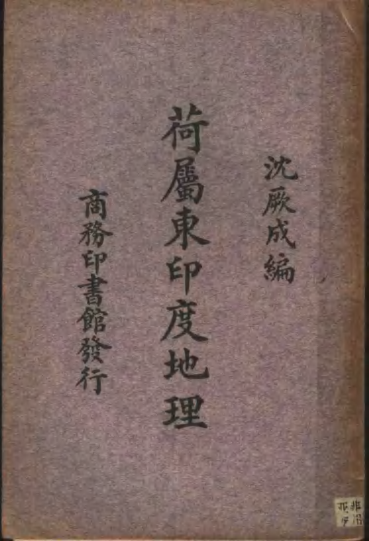 沈厥成編
荷屬東印度地理
商務印書館發行